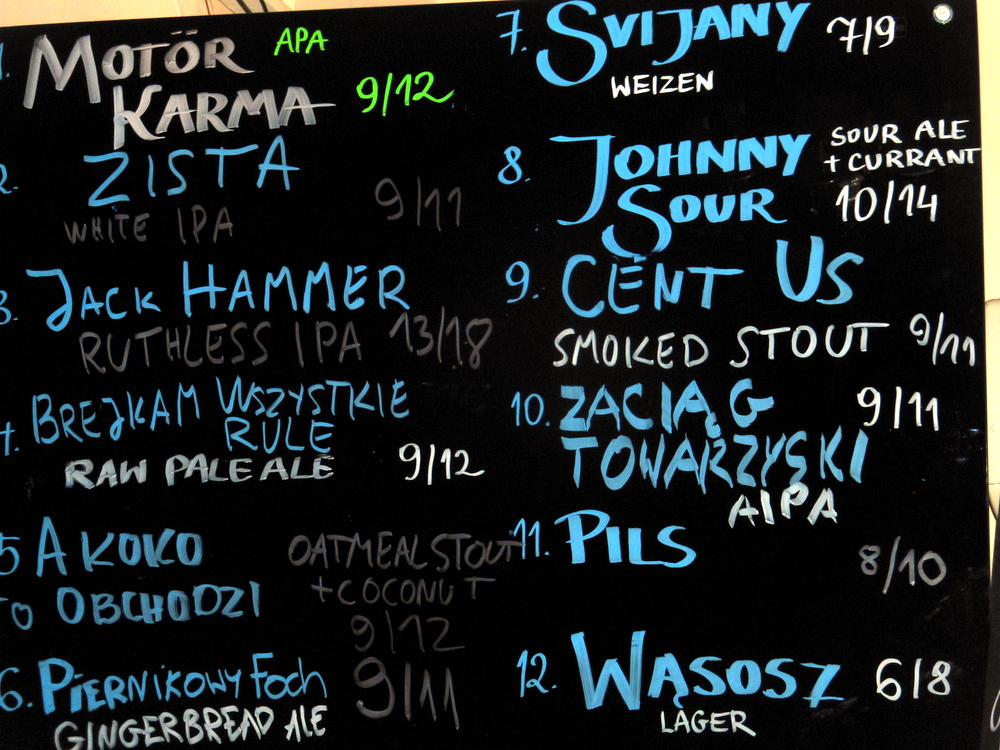 1. MOTÖR APA
KARMA 9/12
2. ZISTA
WHITE IPA 9/11
3. JACK HAMMER
RUTHLESS IPA 13/18
4. BREJKAM WSZYSTKIE
RULE
RAW PALE ALE 9/12
5 A KOKO OATMEAL STOUT
TO OBCHODZI +COCONUT
9/12
6. PIERNIKOWY FOCH 9/11
GINGERBREAD ALE
7. SVIJANY 7/9
WEIZEN
8. JOHNNY SOUR ALE
+ CURRANT
SOUR 10/14
9. CENT US
SMOKED STOUT 9/11
10. ZACIĄG 9/11
TOWARZYSKI
AIPA
11. PILS
8/10
12. WĄSOSZ 6/8
LAGER